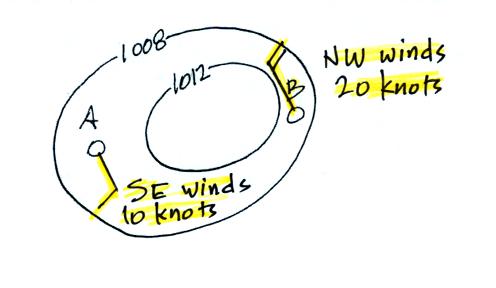 1008
1012
NW winds
20 knots
B
A
SE winds
10 knots